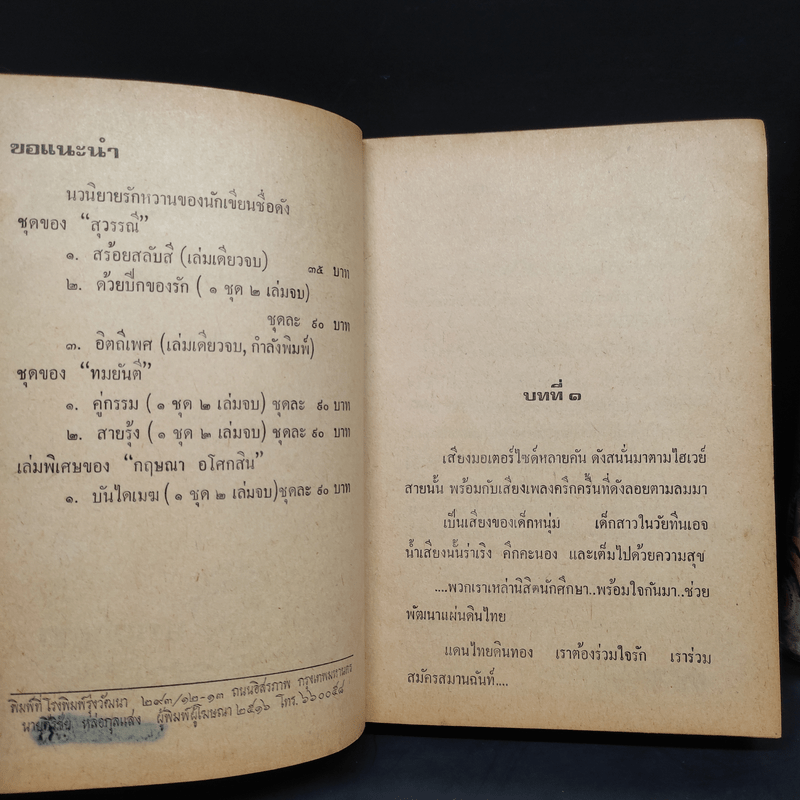 ขอแนะนำ
นวนิยายรักหวานของนักเขียนชื่อดัง
ชุดของ “สุวรรณี”
๑. สร้อยสลับสี (เล่มเดียวจบ)
๓๕ บาท
๒. ด้วยปีกของรัก ( ๑ ชุด ๒ เล่มจบ)
ชุดละ ๙๐ บาท
๓. อิตถีเพศ (เล่มเดียวจบ, กำลังพิมพ์)
ชุดของ “ทมยันตี”
๑. คู่กรรม ( ๑ ชุด ๒ เล่มจบ) ชุดละ ๙๐ บาท
๒. สายรุ้ง ( ๑ ชุด ๒ เล่มจบ) ชุดละ ๙๐ บาท
เล่มพิเศษของ “กฤษณา อโศกสิน”
๑. บันไดเมฆ ( ๑ ชุด ๒ เล่มจบ)ชุดละ ๙๐ บาท
พิมพ์ที่โรงพิมพ์รุ่งวัฒนา ๒๙๓/๑๒-๑๓ ถนนอิสรภาพ กรุงเทพมหานคร
หล่อกุลแสง ผู้พิมพ์ผู้โฆษณา ๒๕๑๖ โทร. ๖๖๐๐๕๔
บทที่ ๑
เสียงมอเตอร์ไซด์หลายคัน ดังสนั่นมาตามไฮเวย์
สายนั้น พร้อมกับเสียงเพลงครึกครื้นที่ดังลอยตามลมมา
เป็นเสียงของเด็กหนุ่ม เด็กสาวในวัยทีนเอจ
น้ำเสียงนั้นร่าเริง คึกคะนอง และเต็มไปด้วยความสุข
....พวกเราเหล่านิสิตนักศึกษา..พร้อมใจกันมา..ช่วย
พัฒนาแผ่นดินไทย
แดนไทยดินทอง เราต้องร่วมใจรัก เราร่วม
สมัครสมานฉันท์....